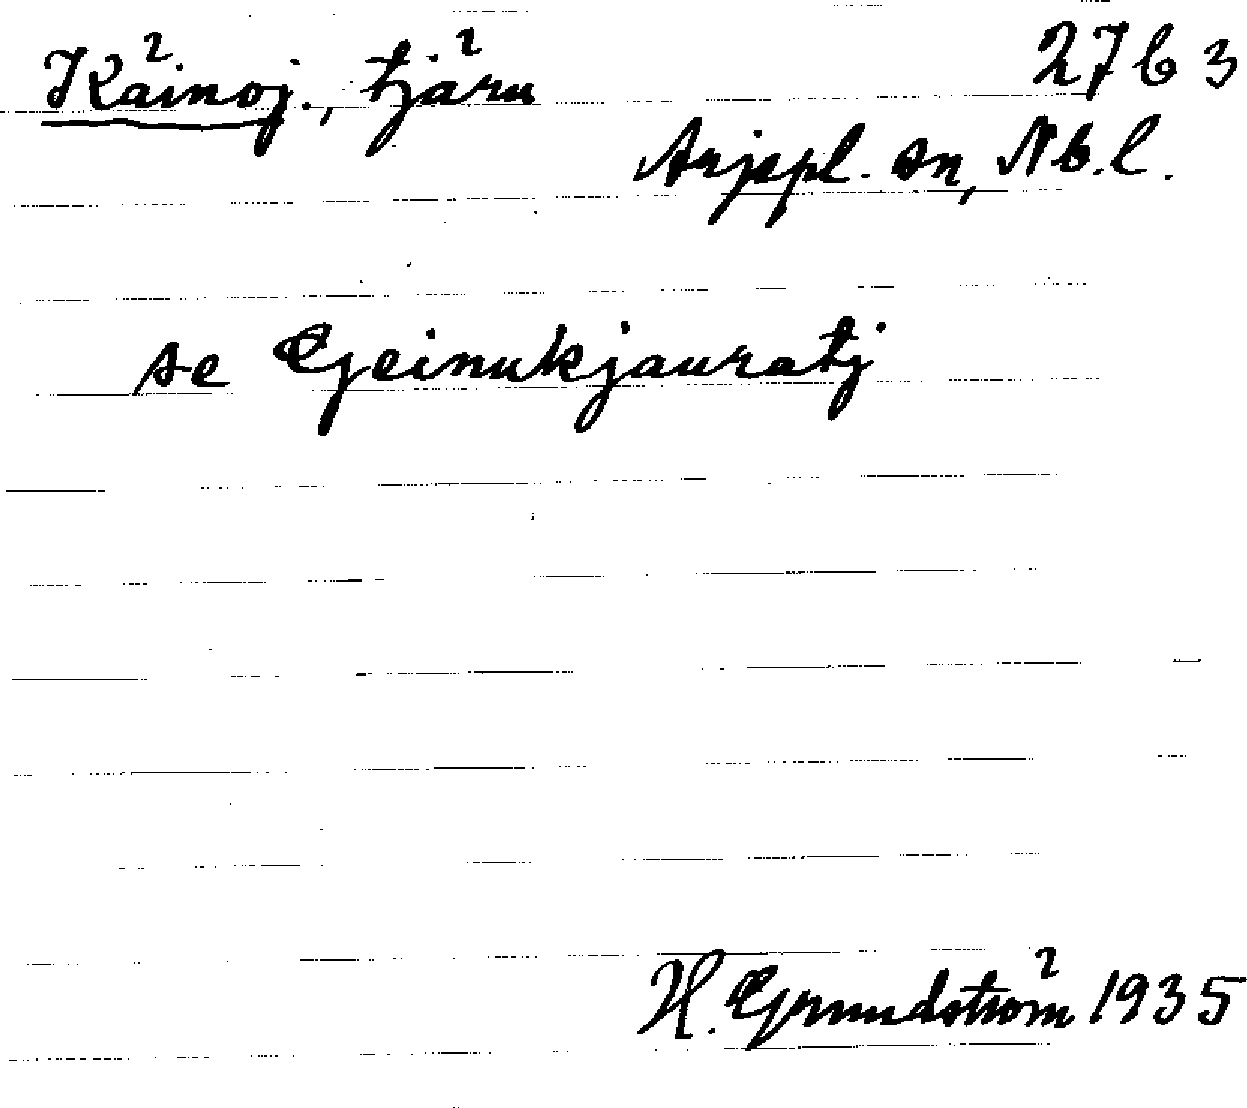 Käinoj., tjärn 27b3
Arjepl. sn, Nb.l.
se Gjeinukjauratj
H. Grundström 1935